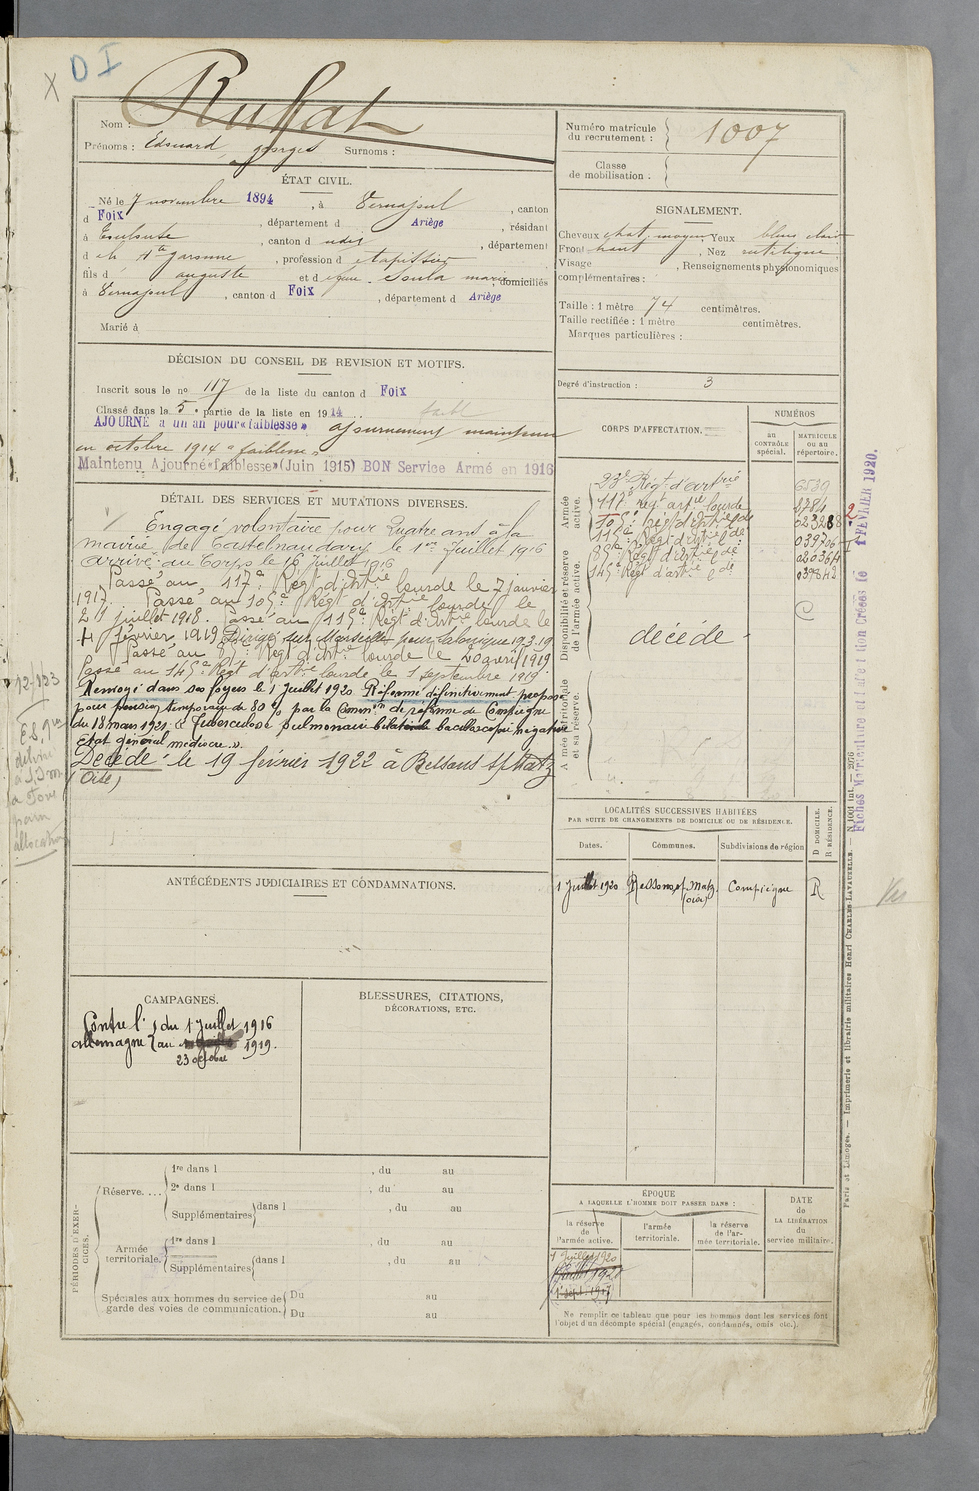 X D I
Nom : Ruffat
Prénoms : Edouard georges Surnoms :
ÉTAT CIVIL.
Né le 7 novembre 1894, à Vernajoul, canton
d Foix, département d Ariège, résidant
à Toulouse, canton d udit, département
d e la Hte garonne, profession d etapissier
fils d auguste et d Soula marie domiciliés
à Vernajoul, canton d Foix, département d Ariège
Marié à
DÉCISION DU CONSEIL DE REVISION ET MOTIFS.
Inscrit sous le no 117 de la liste du canton d Foix
Classé dans la 5e partie de la liste en 1914
AJOURNÉ à un an pour «faiblesse» ajournement maintenu
en octobre 1914 "faiblesse"
Maintenu Ajourné «faiblesse» (Juin 1915) BON Service Armé en 1916
DÉTAIL DES SERVICES ET MUTATIONS DIVERSES.
Engagé volontaire pour quatre ans à la
mairie de Castelnaudary le 1er Juillet 1916
arrivé au Corps le 16 juillet 1916
Passé au 117e Régt d'Artie lourde le 7 janvier
1917. Passé au 105e Régt d'Artie lourde le
21 juillet 1918. Passé au 115e Régt d'Artie lourde le
4 février 1919 Dirigé sur Marseille pour Salonique 19.3.19
Passé au 85e Régt d'Artie lourde le 20 avril 1919
Passé au 145e Régt d'artie lourde le 1 septembre 1919.
Renvoyé dans ses foyers le 1 Juillet 1920. Réformé définitivement proposé
pour pension temporaire de 80 % par la Common de réforme de Compiègne
du 18 mars 1921. « tuberculose pulmonaire bilatérale bacilloscopie négative
état général médiocre ».
Décédé le 19 février 1922 à Ressons s/ Matz
(Oise)
délivré
allocation
ANTÉCÉDENTS JUDICIAIRES ET CONDAMNATIONS.
CAMPAGNES.
Contre l' du 1 Juillet 1916
allemagne au 1919.
23 octobre
BLESSURES, CITATIONS,
DÉCORATIONS, ETC.
PÉRIODES D'EXERCICES.
Réserve....
1re dans l , du au
2e dans l , du au
Supplémentaires dans l , du au
Armée territoriale.
1re dans l , du au
Supplémentaires dans l , du au
Spéciales aux hommes du service de
garde des voies de communication.
Du au
Du au
Numéro matricule
du recrutement : 1007
Classe
de mobilisation .
SIGNALEMENT.
Cheveux chat. moyen Yeux bleus clair
Front haut, Nez rectiligne
Visage , Renseignements physionomiques
complémentaires :
Taille : 1 mètre 74 centimètres.
Taille rectifiée : 1 mètre centimètres.
Marques particulières :
Degré d'instruction : 3
CORPS D'AFFECTATION.
NUMÉROS
au
CONTRÔLE
spécial.
MATRICULE
ou au
répertoire.
Armée
active.
Disponibilité et réserve
de l'armée active.
Armée territoriale
et sa réserve.
23e Régt d'artrie 6539
117e regt artie lourde
105e régt d'Artie lde
115e Régt d'Artie lde
85e Régt d'Artie lde
145e Régt d'artie lde
décédé
LOCALITÉS SUCCESSIVES HABITÉES
PAR SUITE DE CHANGEMENTS DE DOMICILE OU DE RÉSIDENCE.
Dates. Communes. Subdivisions de région D DOMICILE. R RÉSIDENCE.
1 Juillet 1920 Ressons s/ Matz (oise) Compiègne R
ÉPOQUE
A LAQUELLE L'HOMME DOIT PASSER DANS :
la réserve
de
l'armée active.
l'armée
territoriale.
la réserve
de l'ar-
mée territoriale.
DATE
de
LA LIBÉRATION
du
service militaire.
1 Juillet 1920
Ne remplir ce tableau que pour les hommes dont les services font
l'objet d'un décompte spécial (engagés, condamnés, omis etc.).
Paris et Limoges. — Imprimerie et librairie militaires Henri CHARLES-LAVAUZELLE.
FÉVRIER 1920.